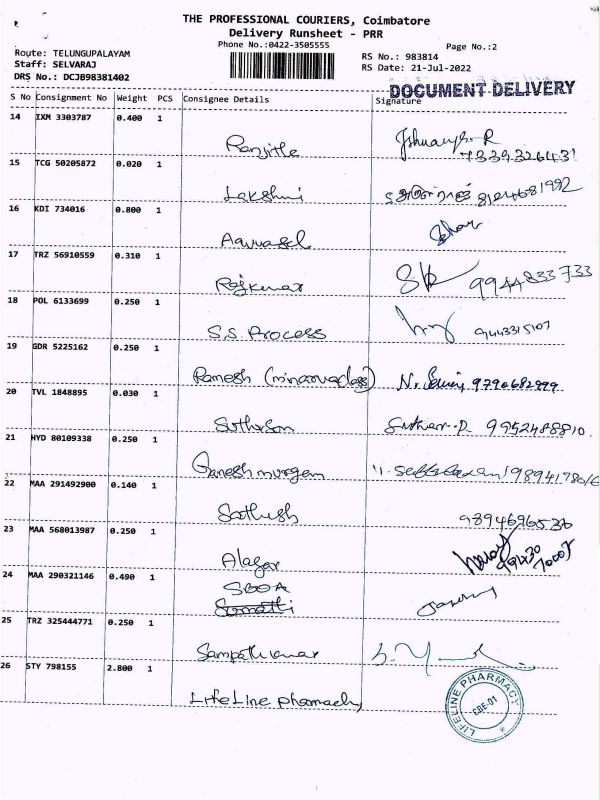 THE PROFESSIONAL COURIERS, Coimbatore
Delivery Runsheet - PRR
Phone No.:0422-3505555
Page No.:2
Route: TELUNGUPALAYAM
Staff: SELVARAJ
DRS No.: DCJB98381402
RS No.: 983814
RS Date: 21-Jul-2022
DOCUMENT DELIVERY
S No Consignment No Weight PCS Consignee Details Signature
14 IXM 3303787 0.400 1
Ranjitha
7339326431
15 TCG 50205872 0.020 1
Lakshmi 8124681992
16 KDI 734016 0.800 1
17 TRZ 56910559 0.310 1
Rajkumar 9944833733
18 POL 6133699 0.250 1
S.S. Process 9443315107
19 GDR 5225162 0.250 1
Ramesh 9790682999
20 TVL 1848895 0.030 1
9952488810.
21 HYD 80109338 0.250 1
Ganesh murgem
22 MAA 291492900 0.140 1
Sathish 9894696536
23 MAA 568013987 0.250 1
Alagar
24 MAA 290321146 0.490 1
SBOA
25 TRZ 325444771 0.250 1
Sampathkumar
26 STY 798155 2.800 1
LifeLine pharmacy
LIFELINE PHARMACY
CBE-01